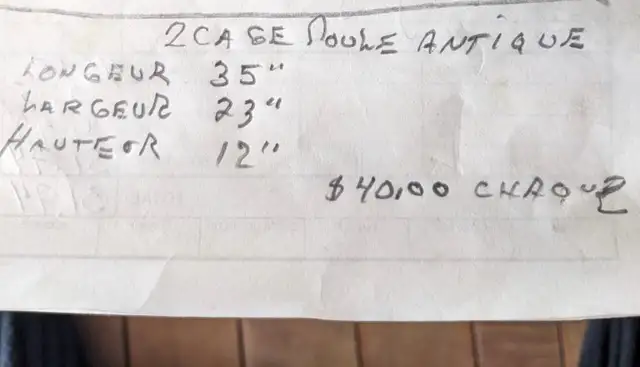 2 CAGE POULE ANTIQUE
LONGEUR 35"
LARGEUR 23"
HAUTEUR 12"
$40,00 CHAQUE